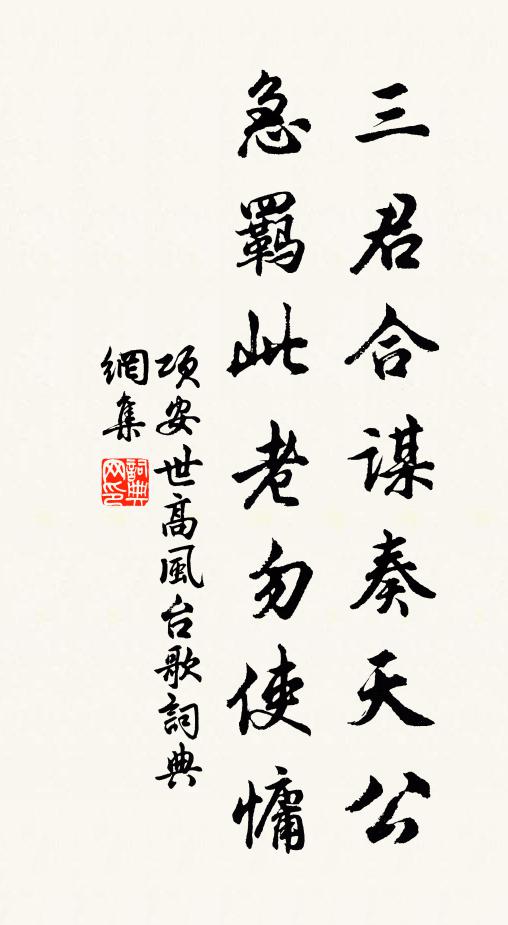 三君合謀奏天公
急羈此老勿使慵
項安世高風台歌詞典
網集
詞典网印